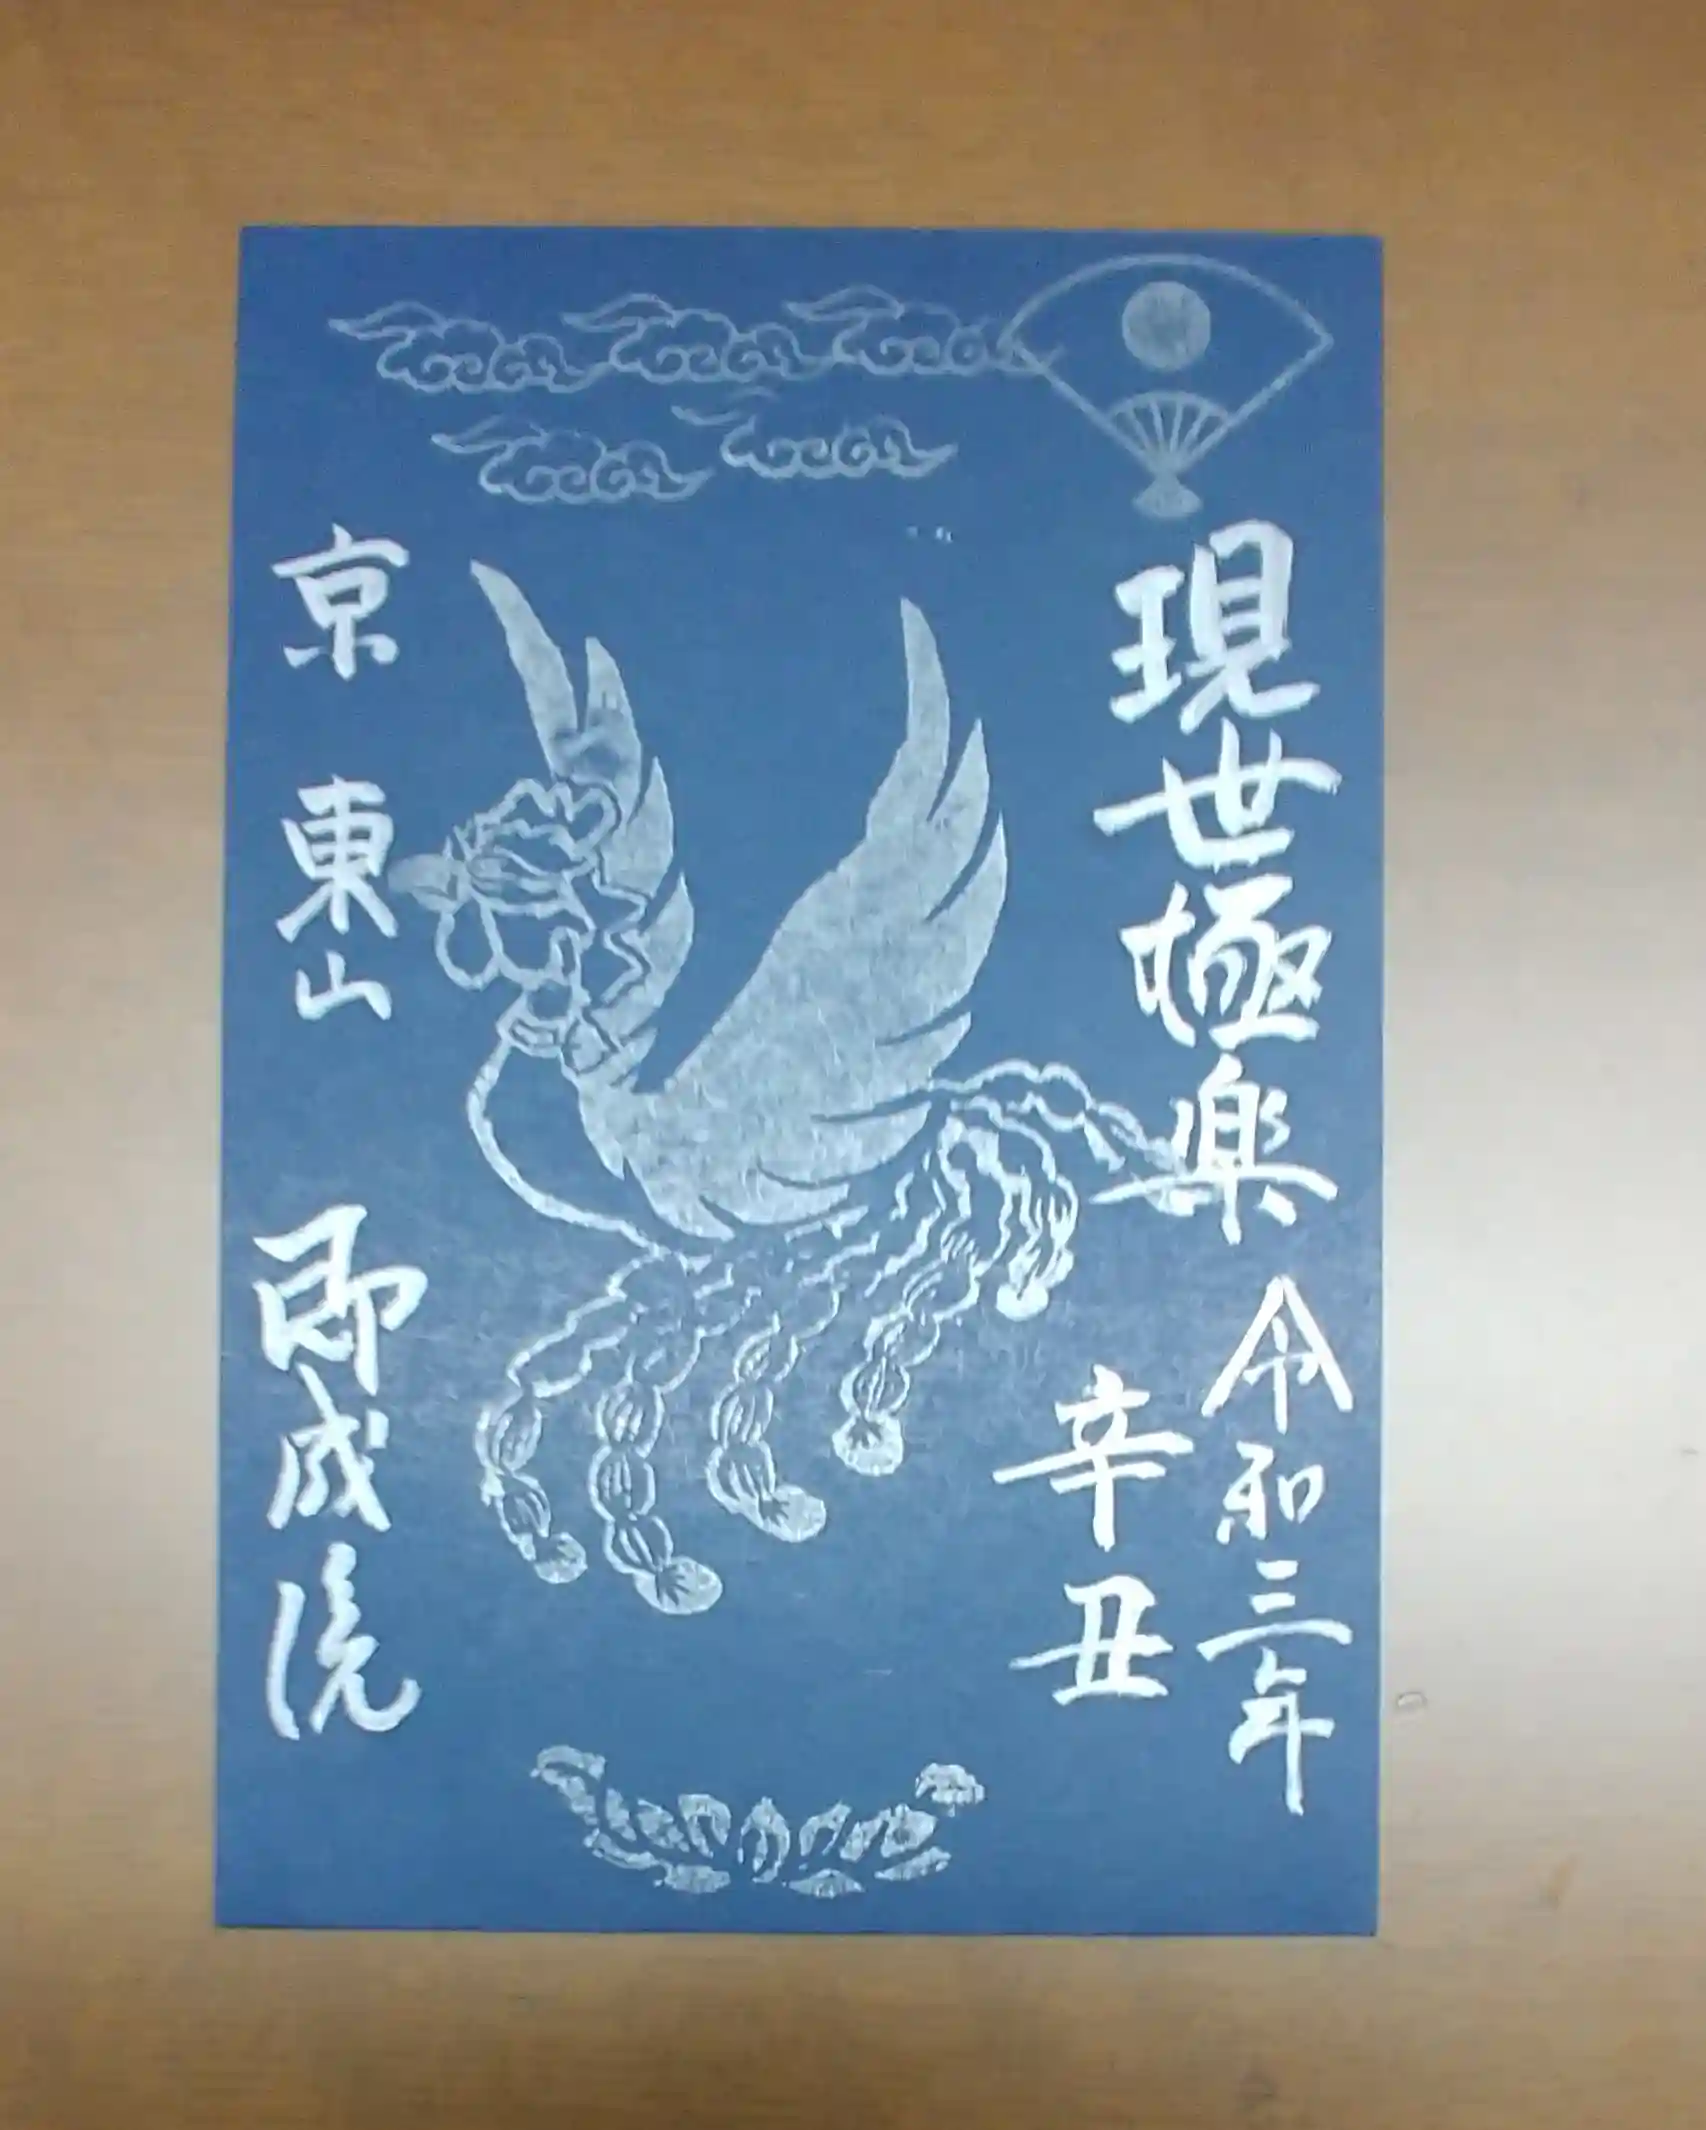 現世極楽 令和三年
辛丑
京 東山
即成院